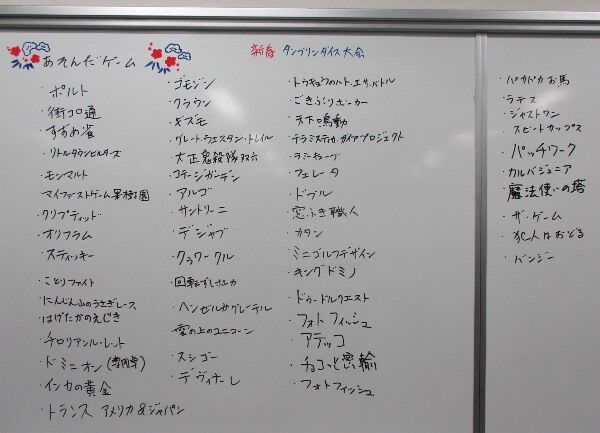 あそんだゲーム
新春 タンブリンダイス大会
・ポルト
・街コロ通
・すずめ雀
・リトルタウンビルダーズ
・モンマルト
・マイファーストゲーム果樹園
・クリプティッド
・オリフラム
・スティッキー
・ことりファイト
・にんじん山のうさぎレース
・はげたかのえじき
・チロリアンルーレット
・ドミニオン
・インカの黄金
・トランス アメリカ&ジャパン
・ゴモジン
・クラウン
・ギズモ
・グレート・ウエスタン・トレイル
・大正鬼殺隊双六
・コテージガーデン
・アルゴ
・サントリーニ
・デジャブ
・クラワークル
・回転すし
・ヘンゼルとグレーテル
・雲の上のユニコーン
・スシゴー
・デヴィナーレ
・トウキョウノハト・エサ・バトル
・ごきぶりポーカー
・天下鳴動
・テラミスティカ・ガイアプロジェクト
・ラミィキューブ
・フェレータ
・ドブル
・窓ふき職人
・カタン
・ミニゴルフデザイン
・キングドミノ
・ドゥードルクエスト
・フォトフィッシュ
・アテッコ
・チョコっと密輸
・フォトフィッシュ
・パカパカお馬
・ラデス
・ジャストワン
・スピードカップス
・パッチワーク
・カルバジュニア
・魔法使いの塔
・ザ・ゲーム
・犯人はおどる
・バンジー